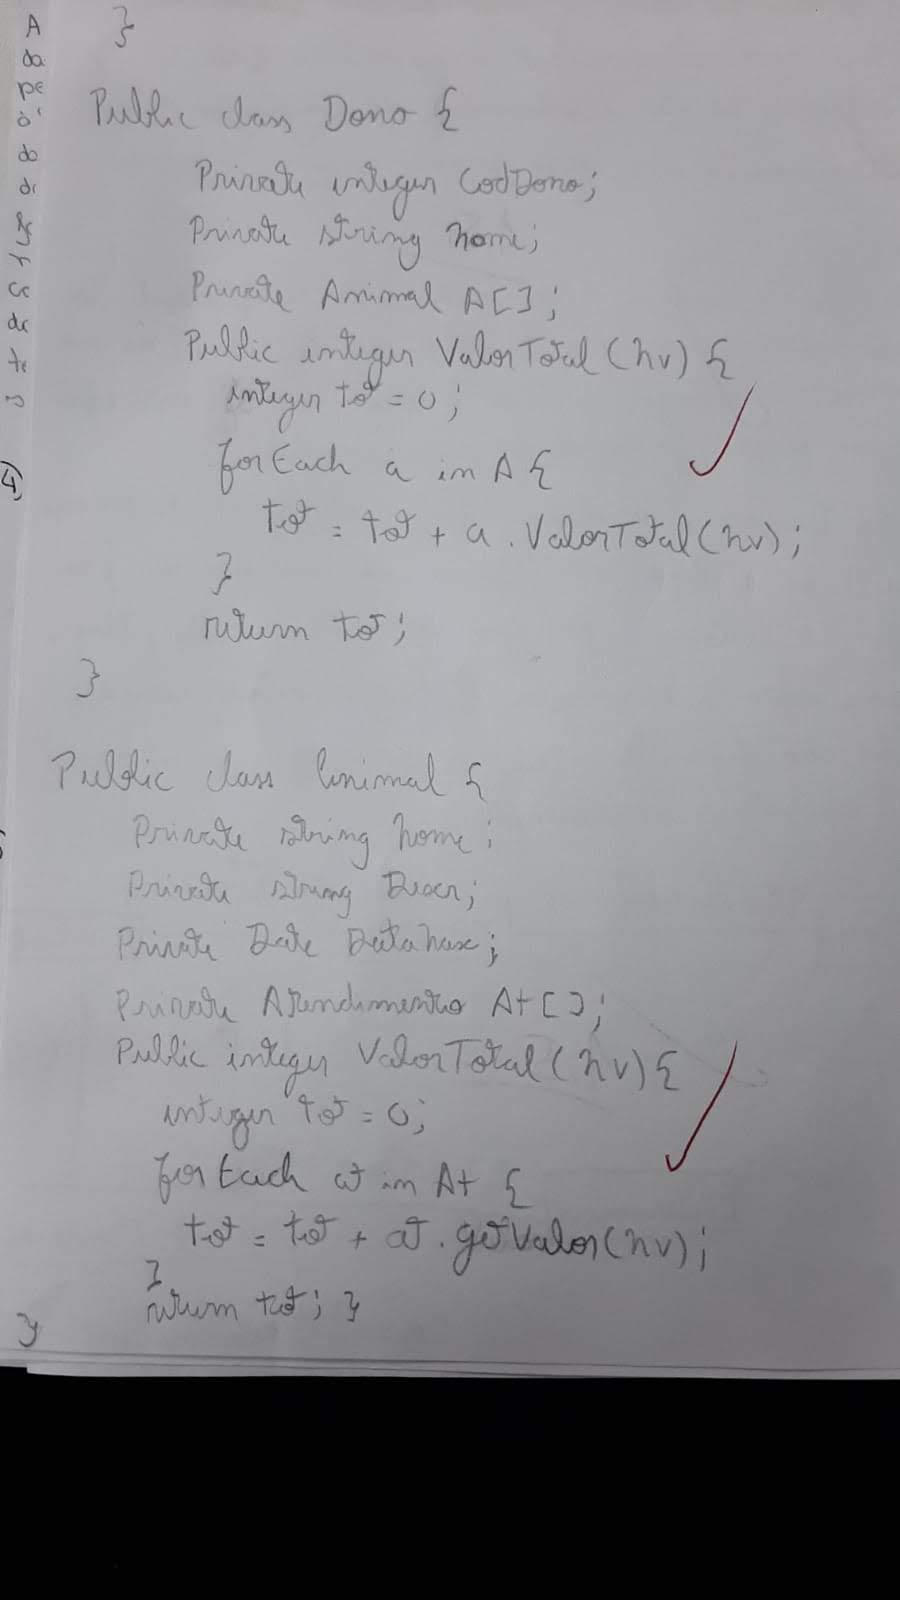 }
Public class Dono {
Private integer CodDono;
Private string nome;
Private Animal A[];
Public integer ValorTotal(nv) {
integer tot = 0;
forEach a in A {
tot = tot + a.ValorTotal(nv);
}
return tot;
}
Public class Animal {
Private string nome;
Private string Descr;
Private Date DataNasc;
Private Atendimento At[];
Public integer ValorTotal(nv){
integer tot = 0;
forEach at in At {
tot = tot + at.getValor(nv);
}
return tot; }
}
A
da
pe
do
te
4